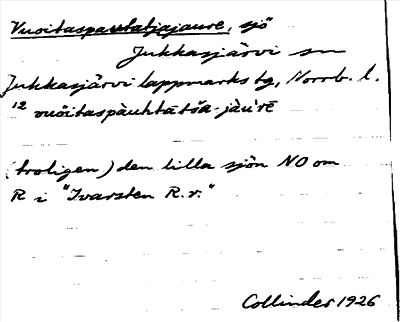 Vuoitaspautatjajaure, sjö
Jukkasjärvi sn
Jukkasjärvi lappmarks tg, Norrb. l.
12 vuöitaspàuhtatša-jàu'rē
(troligen) den lilla sjön NO om
R i "Ivarsten R.r."
Collinder 1926